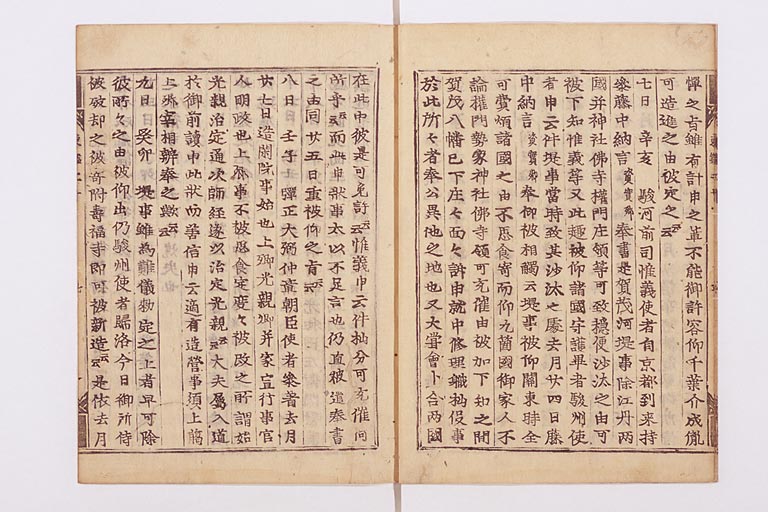 憚之旨雖有計申之輩不能御許容仰千葉介成胤
可造進之由被定之云云
七日 辛亥 駿河前司惟義使者自京都到来持
參藤中納言資實卿奉書是賀茂河堤事除江丹兩
國并神社佛寺權門庄領等可致穏便沙汰之由可
被下知惟義等又此趣被仰諸國守護畢者駿州使
者申云件堤事當時致其沙汰之處去月廿四日藤
中納言資實卿奉仰被相觸云堤事被仰關東時全
可費煩諸國之由不思食寄而仰九箇國御家人不
論權門勢家神社佛寺領可充催由被加下知之間
賀茂八幡已下庄々面々訴申就中修理職杣役事
於此所々者奉公異他之地也又大嘗會卜合兩國
在此中彼是可免許云云惟義申云件杣分可充催同
所乎云云而此申狀事太以不足言也仍直被遣奉書
之由同廿五日重被仰之旨云云
八日 壬子 彈正大弼仲章朝臣使者參着去月
廿七日造閑院事始也上卿光親卿并家宣行事官
人明政也上卿事不被思食定変々被改之所謂始
光親治定通次師經遂以治定光親云云大夫属入道
於御前讀申此狀而善信申云適有造營事須上﨟
上卿宰相辨奉之歟云云
九日 癸卯 堤事雖為難儀勅定之上者早可除
彼所々之由被仰出仍駿州使者歸洛今日御所侍
被破却之被寄附壽福寺即可被新造云云是依去月